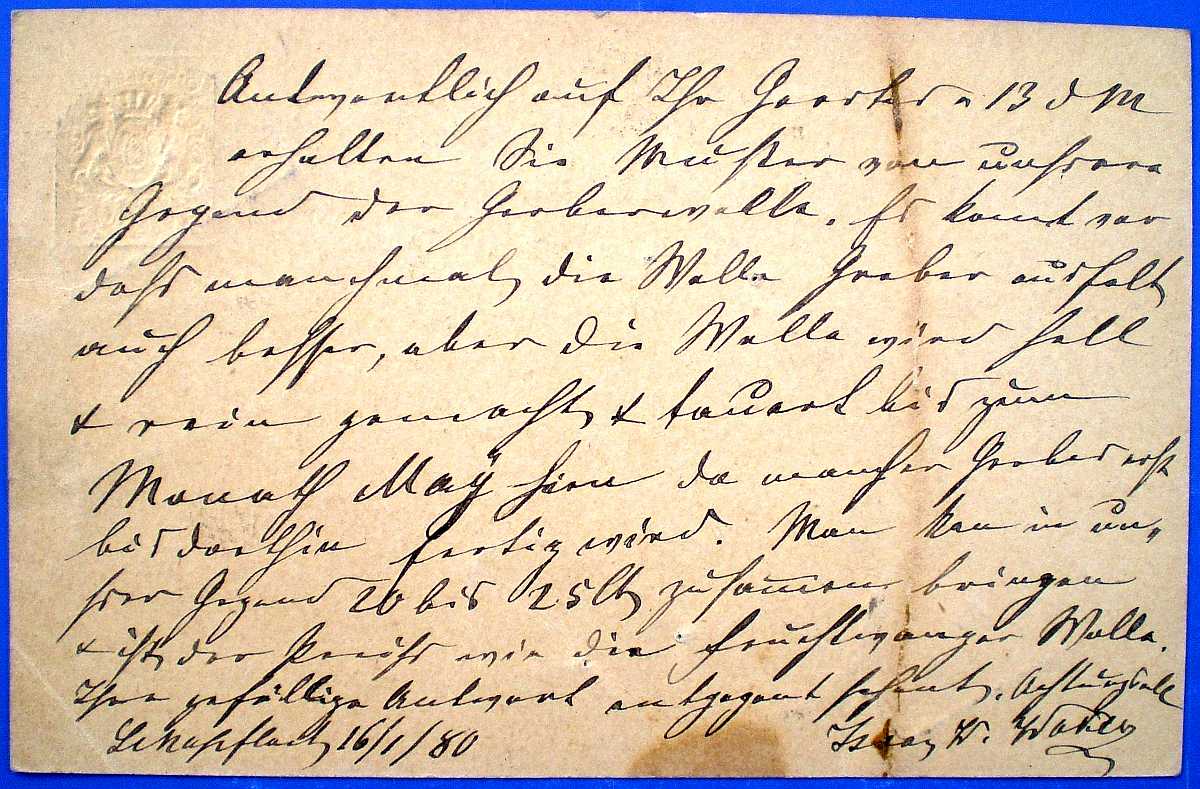 Antwortlich auf Ihr Geertes v 13 d M
erhalten Sie Muster von unsrere
Gegend der Gerberwolle. Es komt vor
daß manchmal die Wolle Greber ausfelt
auch besser, aber die Wolle wird hell
& rein gemacht & tauert bis zum
Monath May hien da mancher Gerber erst
bis dorthin fertig wird. Man kan in un-
srer Gegend 20 bis 25 Ct zusammen bringen
& ist der Preiß wie die Feuchtwanger Wolle.
Ihre gefällige Antwort entgegent sehent. Achtungsvoll
16/1/80 W.